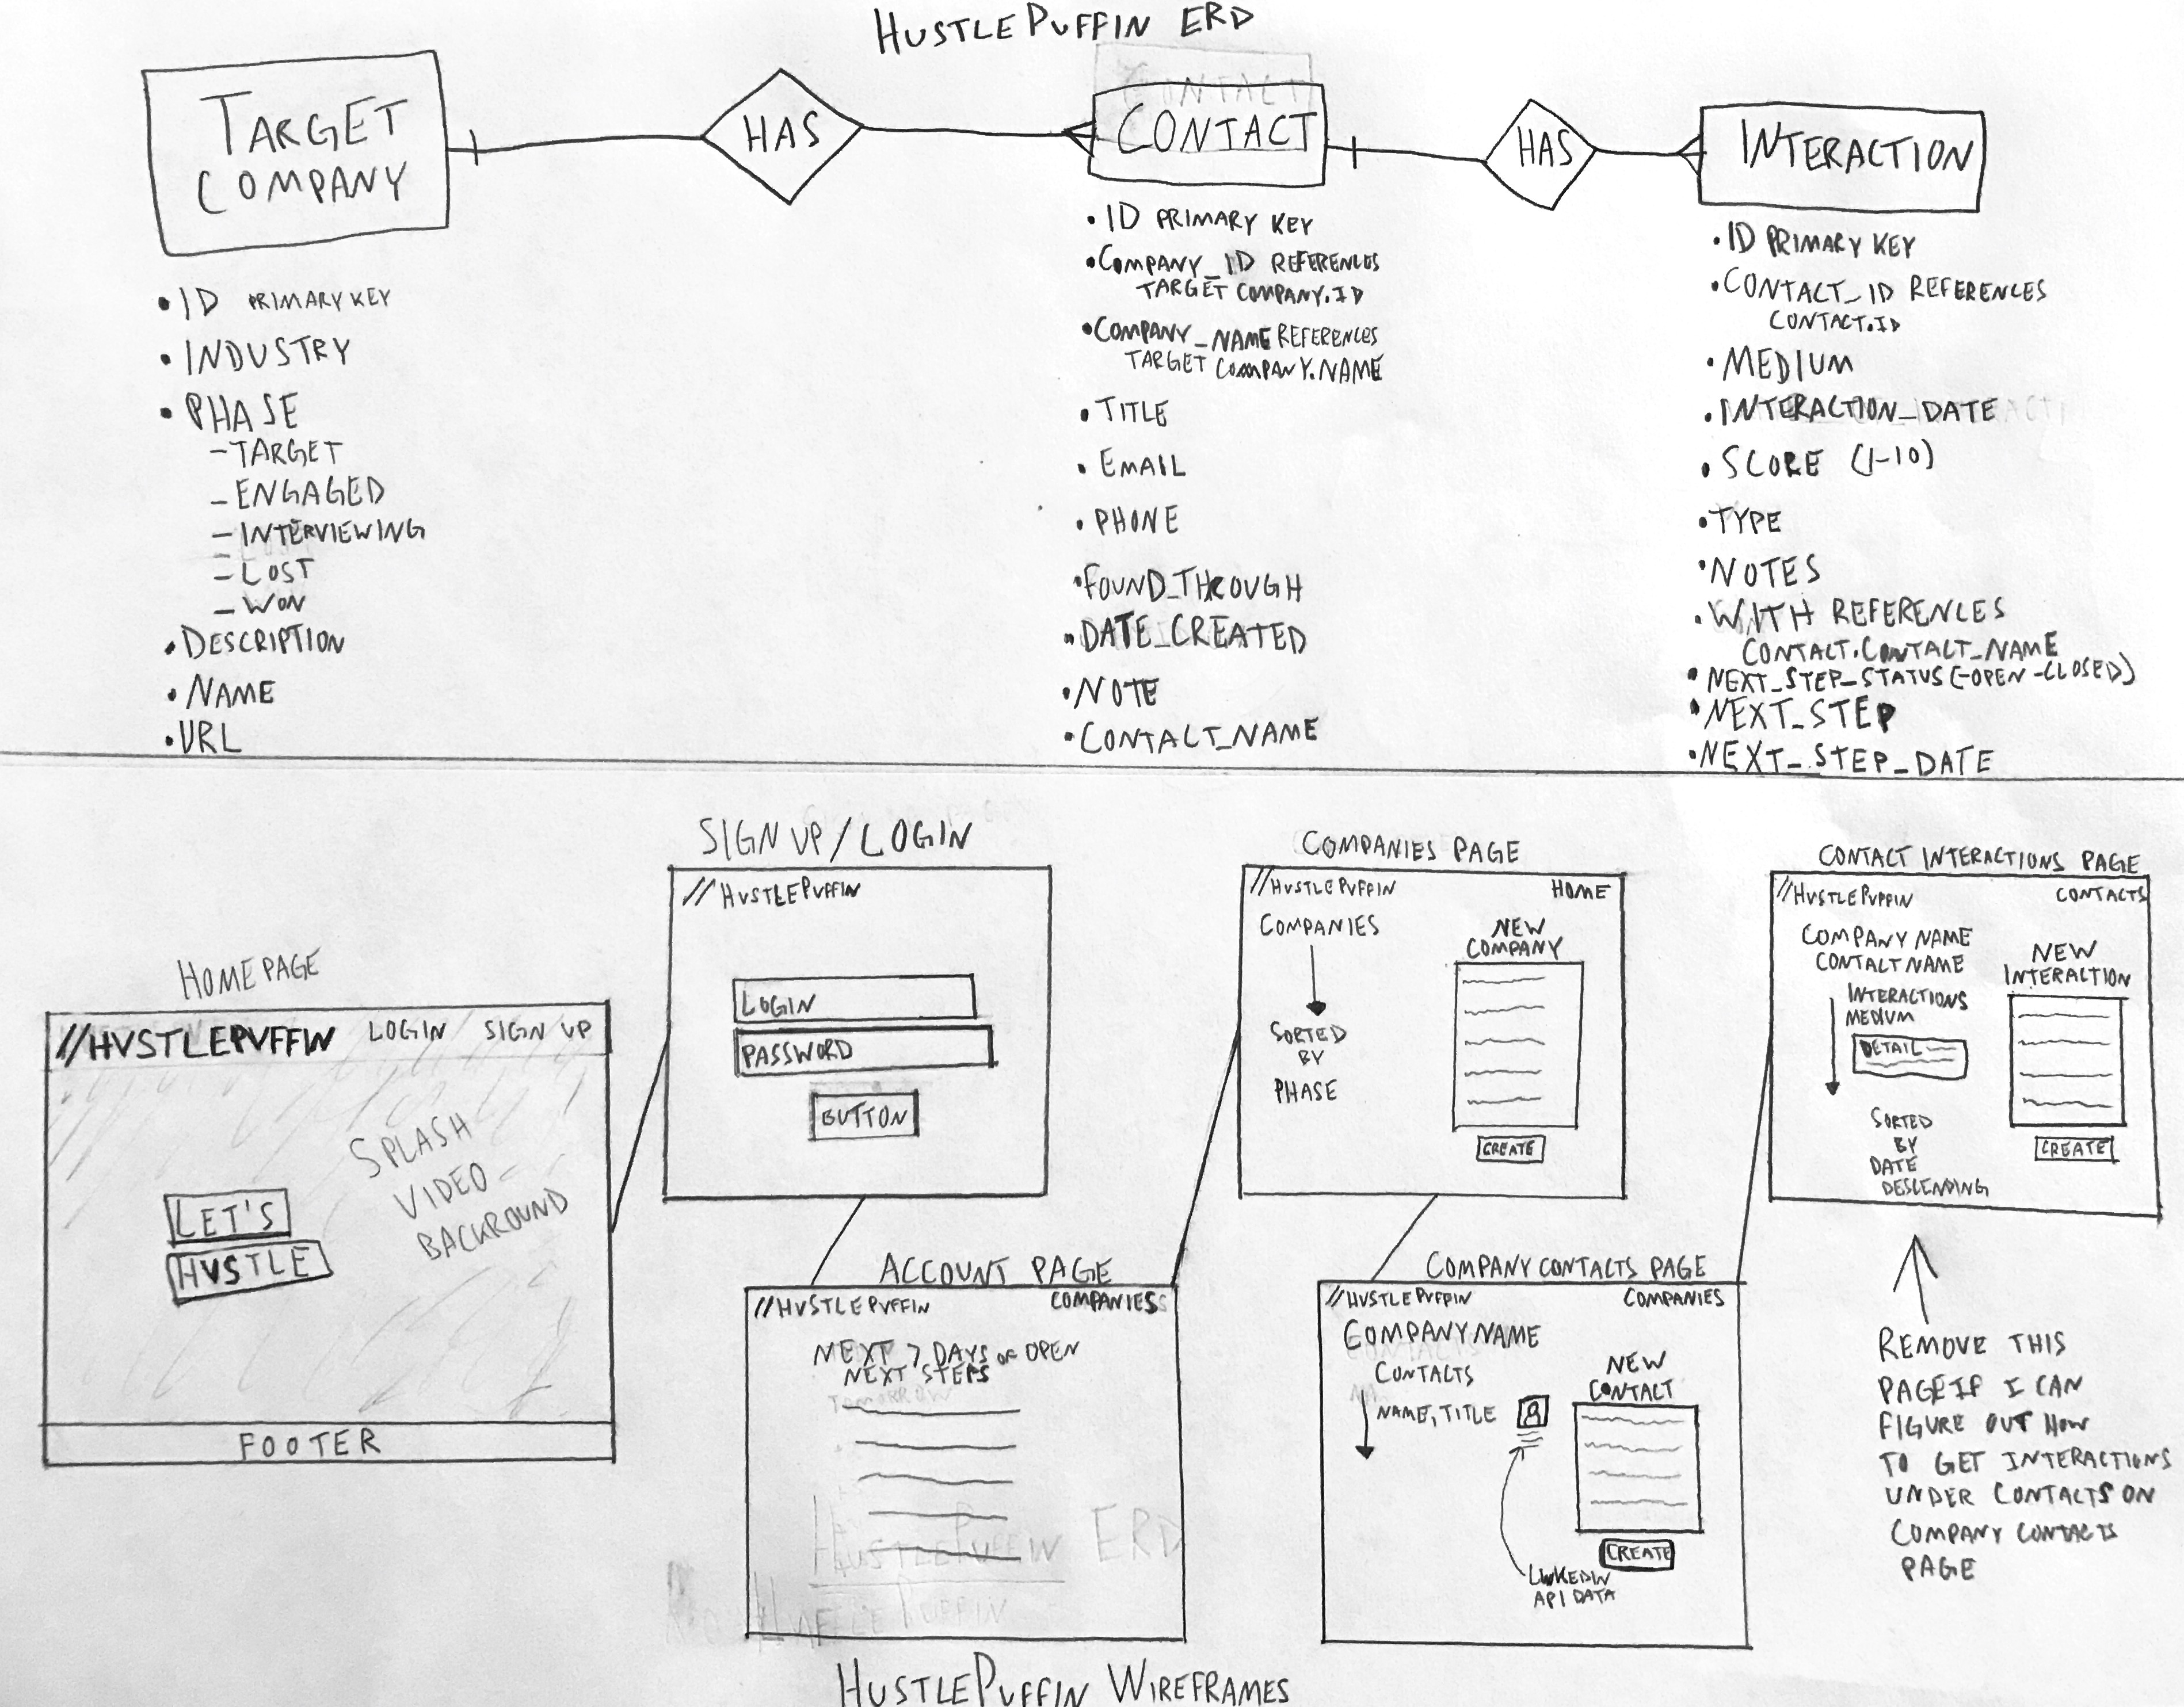 HUSTLEPUFFIN ERD
TARGET
COMPANY
HAS
CONTACT
CONTACT
HAS
INTERACTION
• ID PRIMARY KEY
• INDUSTRY
• PHASE
- TARGET
- ENGAGED
- INTERVIEWING
- LOST
- WON
• DESCRIPTION
• NAME
• URL
• ID PRIMARY KEY
• COMPANY_ID REFERENCES
TARGET COMPANY.ID
• COMPANY_NAME REFERENCES
TARGET COMPANY.NAME
• TITLE
• EMAIL
• PHONE
• FOUND_THROUGH
• DATE_CREATED
• NOTE
• CONTACT_NAME
• ID PRIMARY KEY
• CONTACT_ID REFERENCES
CONTACT.ID
• MEDIUM
• INTERACTION_DATE
• SCORE (1-10)
• TYPE
• NOTES
• WITH REFERENCES
CONTACT.CONTACT_NAME
• NEXT_STEP_STATUS (-OPEN -CLOSED)
• NEXT_STEP
• NEXT_STEP_DATE
HOMEPAGE
//HUSTLEPUFFIN LOGIN SIGN UP
SPLASH
VIDEO
BACKROUND
LET'S
HUSTLE
FOOTER
SIGN UP/LOGIN
//HUSTLEPUFFIN
LOGIN
PASSWORD
BUTTON
ACCOUNT PAGE
//HUSTLEPUFFIN COMPANIES
NEXT 7 DAYS OF OPEN
NEXT STEPS
TOMORROW
HUSTLEPUFFIN ERD
PUFFIN
COMPANIES PAGE
//HUSTLEPUFFIN HOME
COMPANIES
SORTED
BY
PHASE
NEW
COMPANY
CREATE
COMPANY CONTACTS PAGE
//HUSTLEPUFFIN COMPANIES
COMPANY NAME
CONTACTS
NAME, TITLE
NEW
CONTACT
CREATE
LINKEDIN
API DATA
CONTACT INTERACTIONS PAGE
//HUSTLEPUFFIN CONTACTS
COMPANY NAME
CONTACT NAME
INTERACTIONS
MEDIUM
DETAIL
SORTED
BY
DATE
DESCENDING
NEW
INTERACTION
CREATE
REMOVE THIS
PAGE IF I CAN
FIGURE OUT HOW
TO GET INTERACTIONS
UNDER CONTACTS ON
COMPANY CONTACTS
PAGE
HUSTLEPUFFIN WIREFRAMES